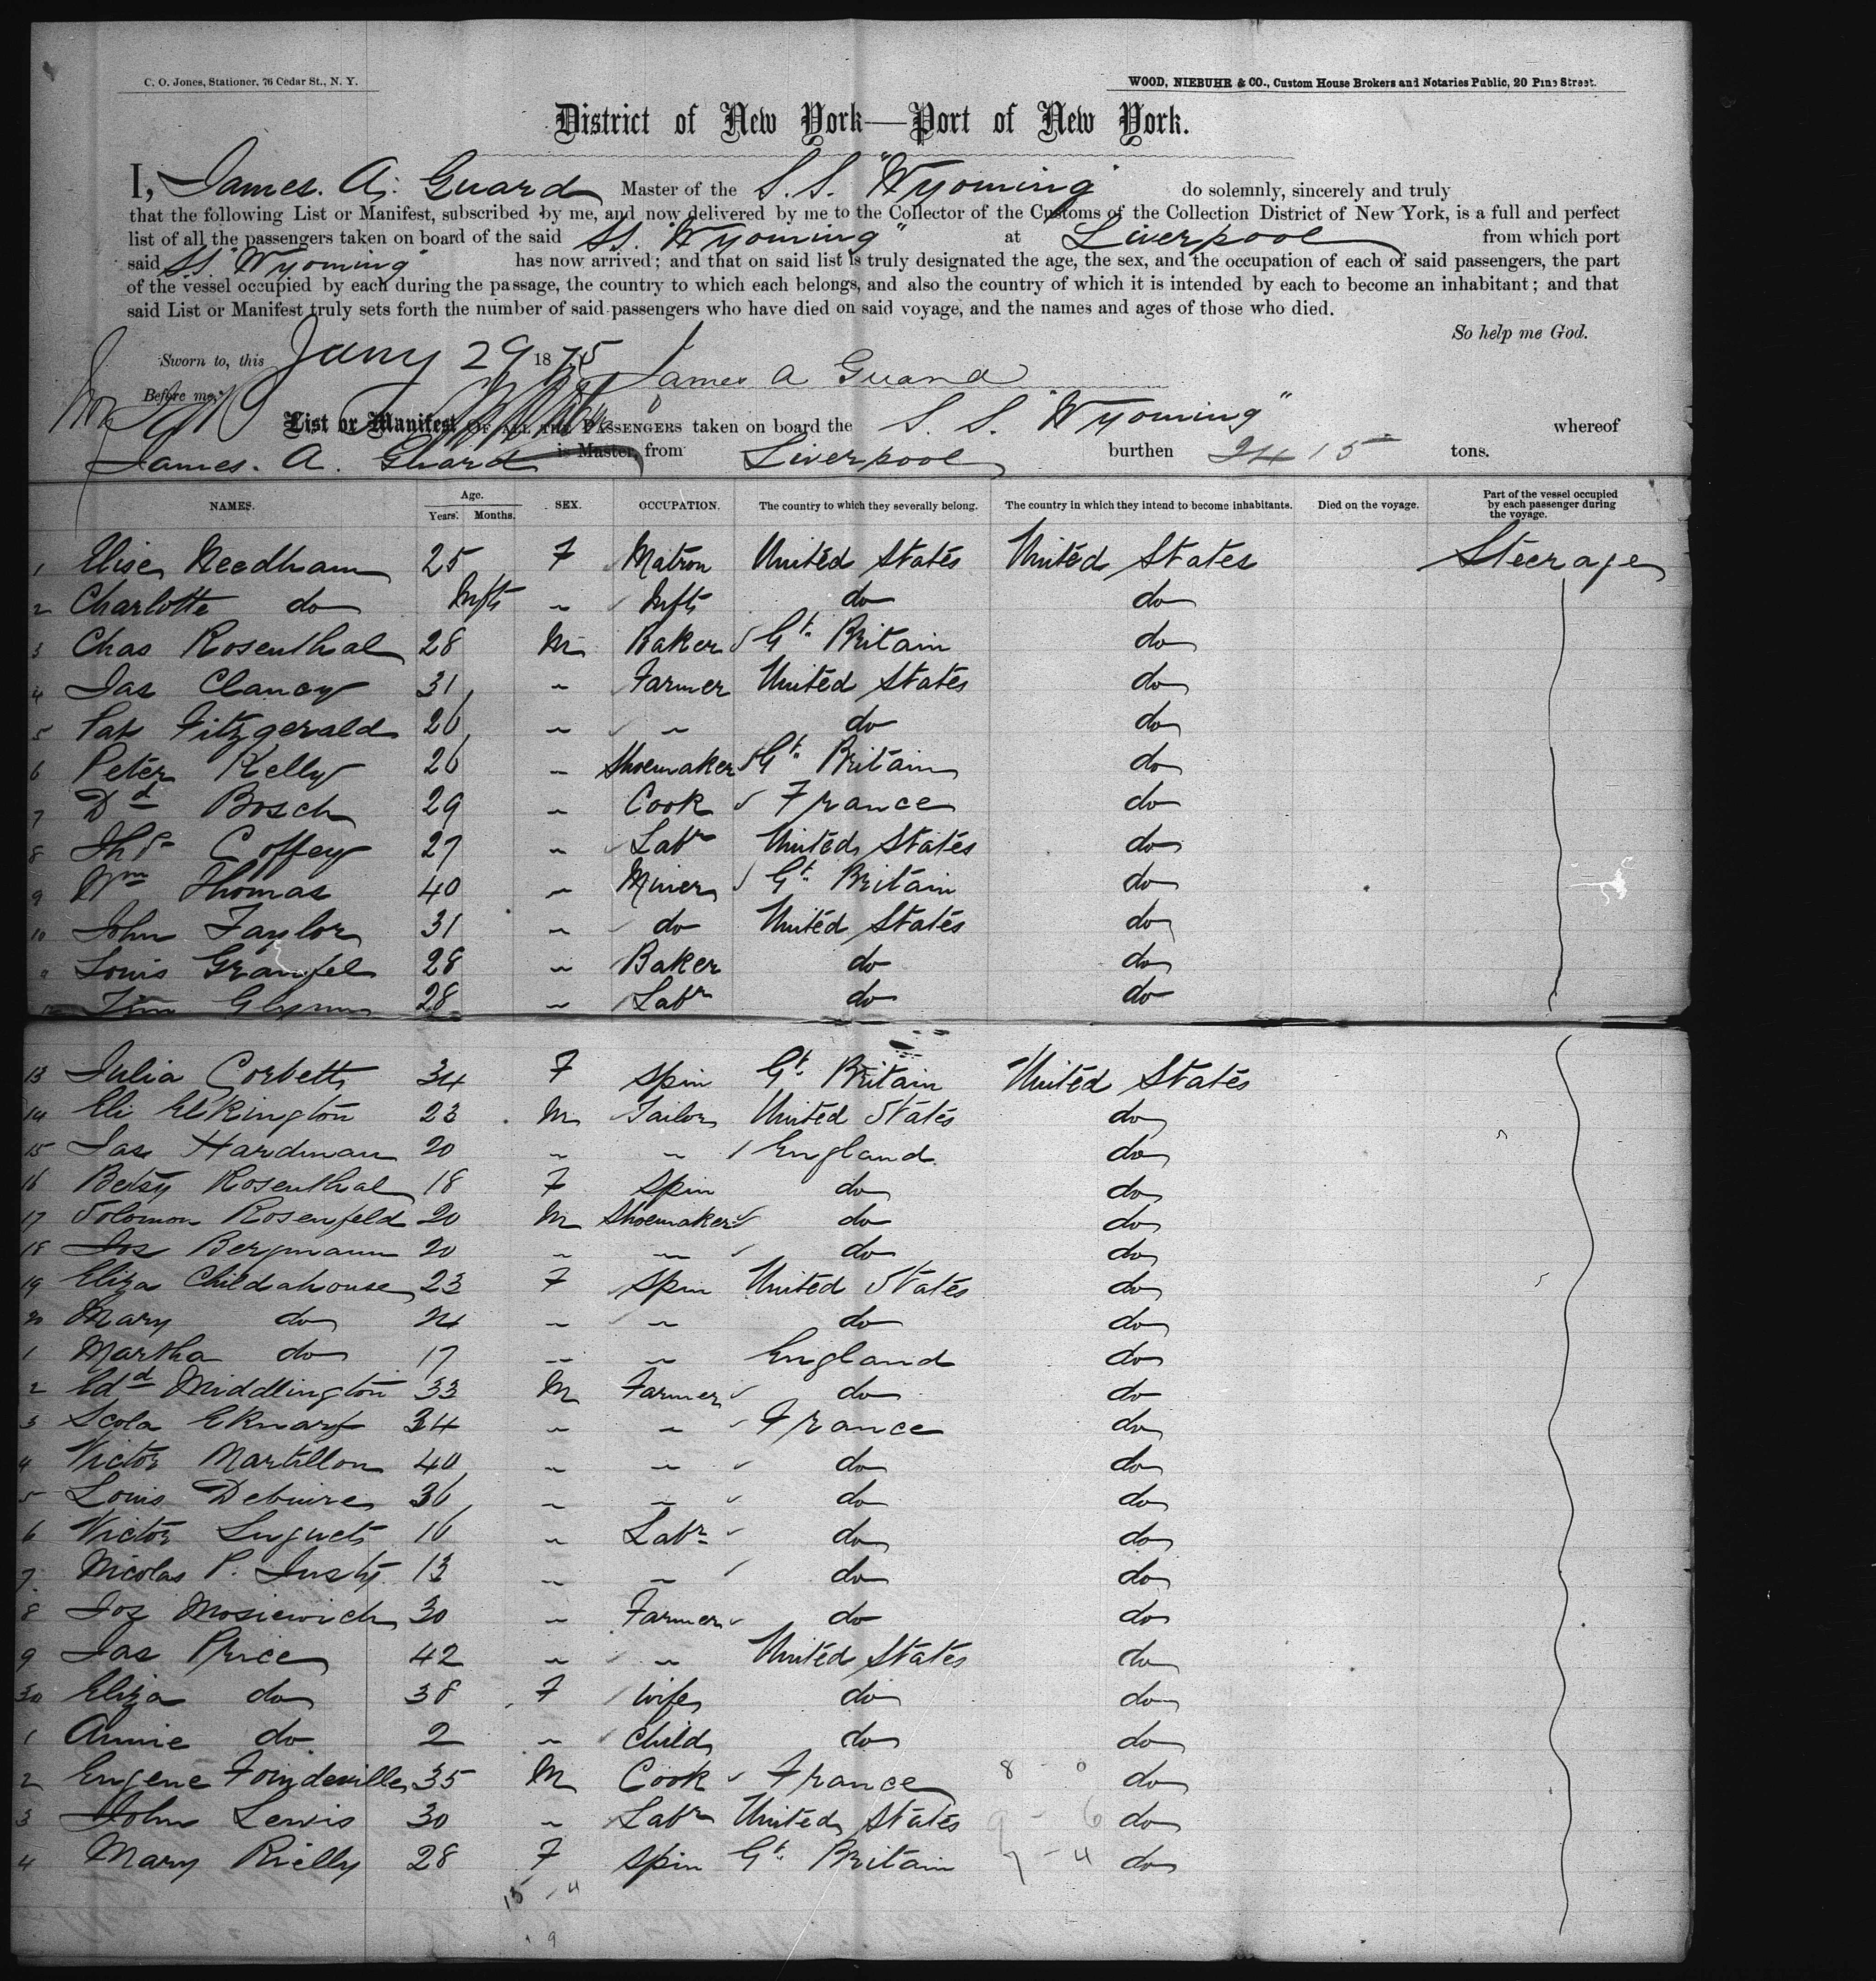 C. O. Jones, Stationer, 76 Cedar St., N. Y.
WOOD, NIEBUHR & CO., Custom House Brokers and Notaries Public, 20 Pine Street.
District of New York—Port of New York.
I, James. A. Guard Master of the S.S. "Wyoming" do solemnly, sincerely and truly
that the following List or Manifest, subscribed by me, and now delivered by me to the Collector of the Customs of the Collection District of New York, is a full and perfect
list of all the passengers taken on board of the said SS. "Wyoming" at Liverpool from which port
said SS "Wyoming" has now arrived; and that on said list is truly designated the age, the sex, and the occupation of each of said passengers, the part
of the vessel occupied by each during the passage, the country to which each belongs, and also the country of which it is intended by each to become an inhabitant; and that
said List or Manifest truly sets forth the number of said passengers who have died on said voyage, and the names and ages of those who died.
So help me God.
Sworn to, this Jany 29 1875 James A Guard
Before me,
List or Manifest OF ALL THE PASSENGERS taken on board the S. S. "Wyoming" whereof
James. A. Guard is Master, from Liverpool burthen 2415 tons.
NAMES. Age. Years. Months. SEX. OCCUPATION. The country to which they severally belong. The country in which they intend to become inhabitants. Died on the voyage. Part of the vessel occupied by each passenger during the voyage.
1 Elise Needham 25 F Matron United States United States Steerage
2 Charlotte do Inft " Inft do do
3 Chas Rosenthal 28 M Baker Gt. Britain do
4 Jas Clancy 31 " Farmer United States do
5 Pat Fitzgerald 26 " " do do
6 Peter Kelly 26 " Shoemaker Gt. Britain do
7 Dd Bosch 29 " Cook France do
8 Ths Coffey 27 " Labr United States do
9 Wm Thomas 40 " Miner Gt. Britain do
10 John Taylor 31 " do United States do
11 Louis 28 " Baker do do
Glynn 28 " Labr do do
13 Julia Corbett 34 F Spin Gt. Britain United States
14 Eli Elkington 23 M Tailor United States do
15 Jas Hardman 20 " " England do
16 Betsy Rosenthal 18 F Spin do do
17 Solomon Rosenfeld 20 M Shoemaker do do
18 Jos Bergmann 20 " " do do
19 Eliza Childahouse 23 F Spin United States do
20 Mary do 24 " " do do
1 Martha do 17 " " England do
2 Edd Middlington 33 M Farmer do do
3 Scola 34 " " France do
4 Victor Martillon 40 " " do do
5 Louis 36 " " do do
6 Victor 16 " Labr do do
7 Nicolas P. 13 " " do do
8 Jos Mosiewich 30 " Farmer do do
9 Jas Price 42 " " United States do
30 Eliza do 38 F Wife do do
1 Annie do 2 " Child do do
2 Eugene 35 M Cook France 8 - 0 do
3 John Lewis 30 " Labr United States 9 - 6 do
4 Mary Rielly 28 F Spin Gt. Britain 7 - 4 do